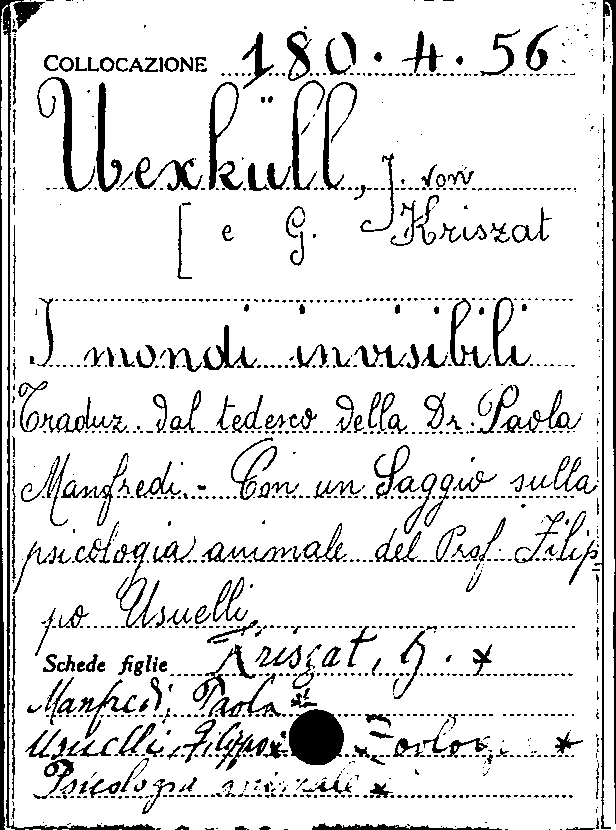 COLLOCAZIONE 180.4.56
Uexküll, J. von
[ e G. Kriszat
I mondi invisibili
Traduz. dal tedesco della Dr. Paola
Manfredi. - Con un Saggio sulla
psicologia animale del Prof. Filip
po Usuelli.
Schede figlie Kriszat, G. *
Manfredi, Paola *
Usuelli, Filippo * Zoologia *
Psicologia animale *